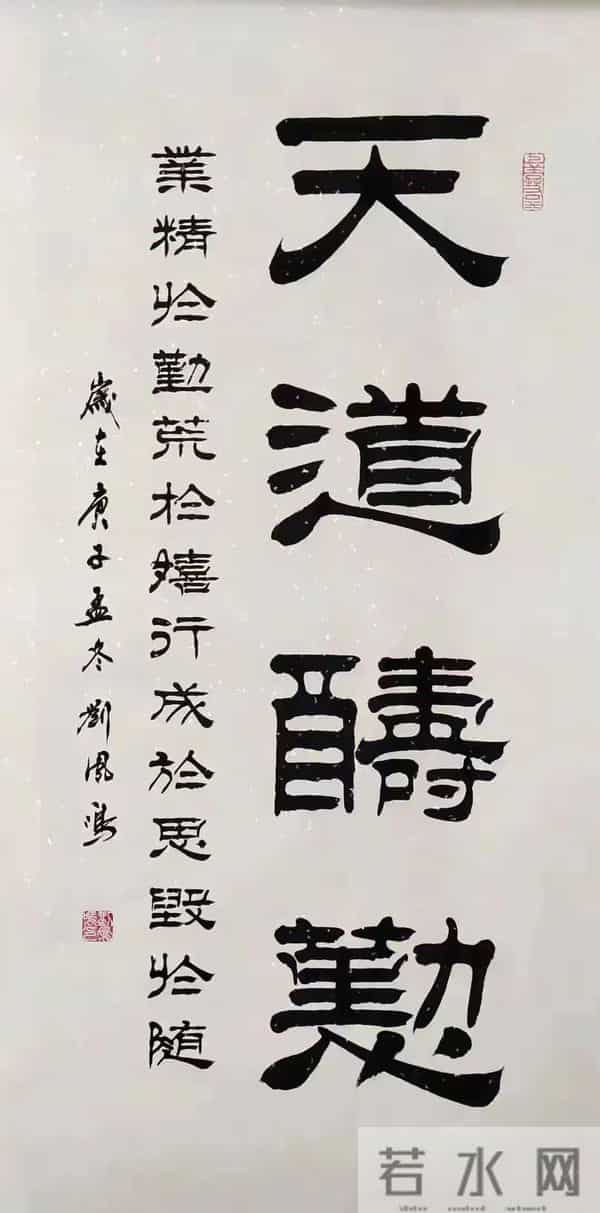 天道酬懃
業精於勤荒於嬉行成於思毀於随
歲在庚子孟冬劉鳳鳴
若水网